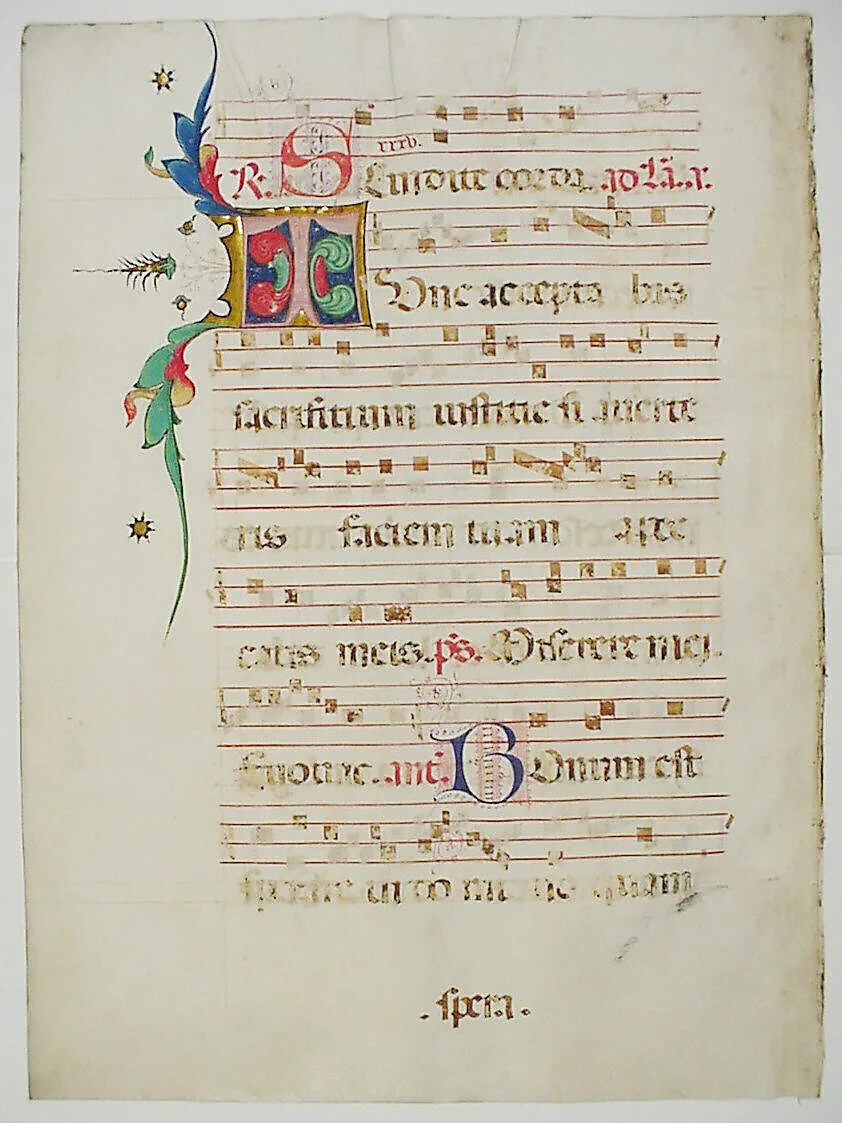 xxxv.
R. Scindite corda. ad La. x.
Tunc acceptabis
sacrifitium iustitie si averte
ris faciem tuam a pec
catis meis. ps. Miserere mei.
Euouae. ant. Bonum est
sperare in domino quam
. spera .